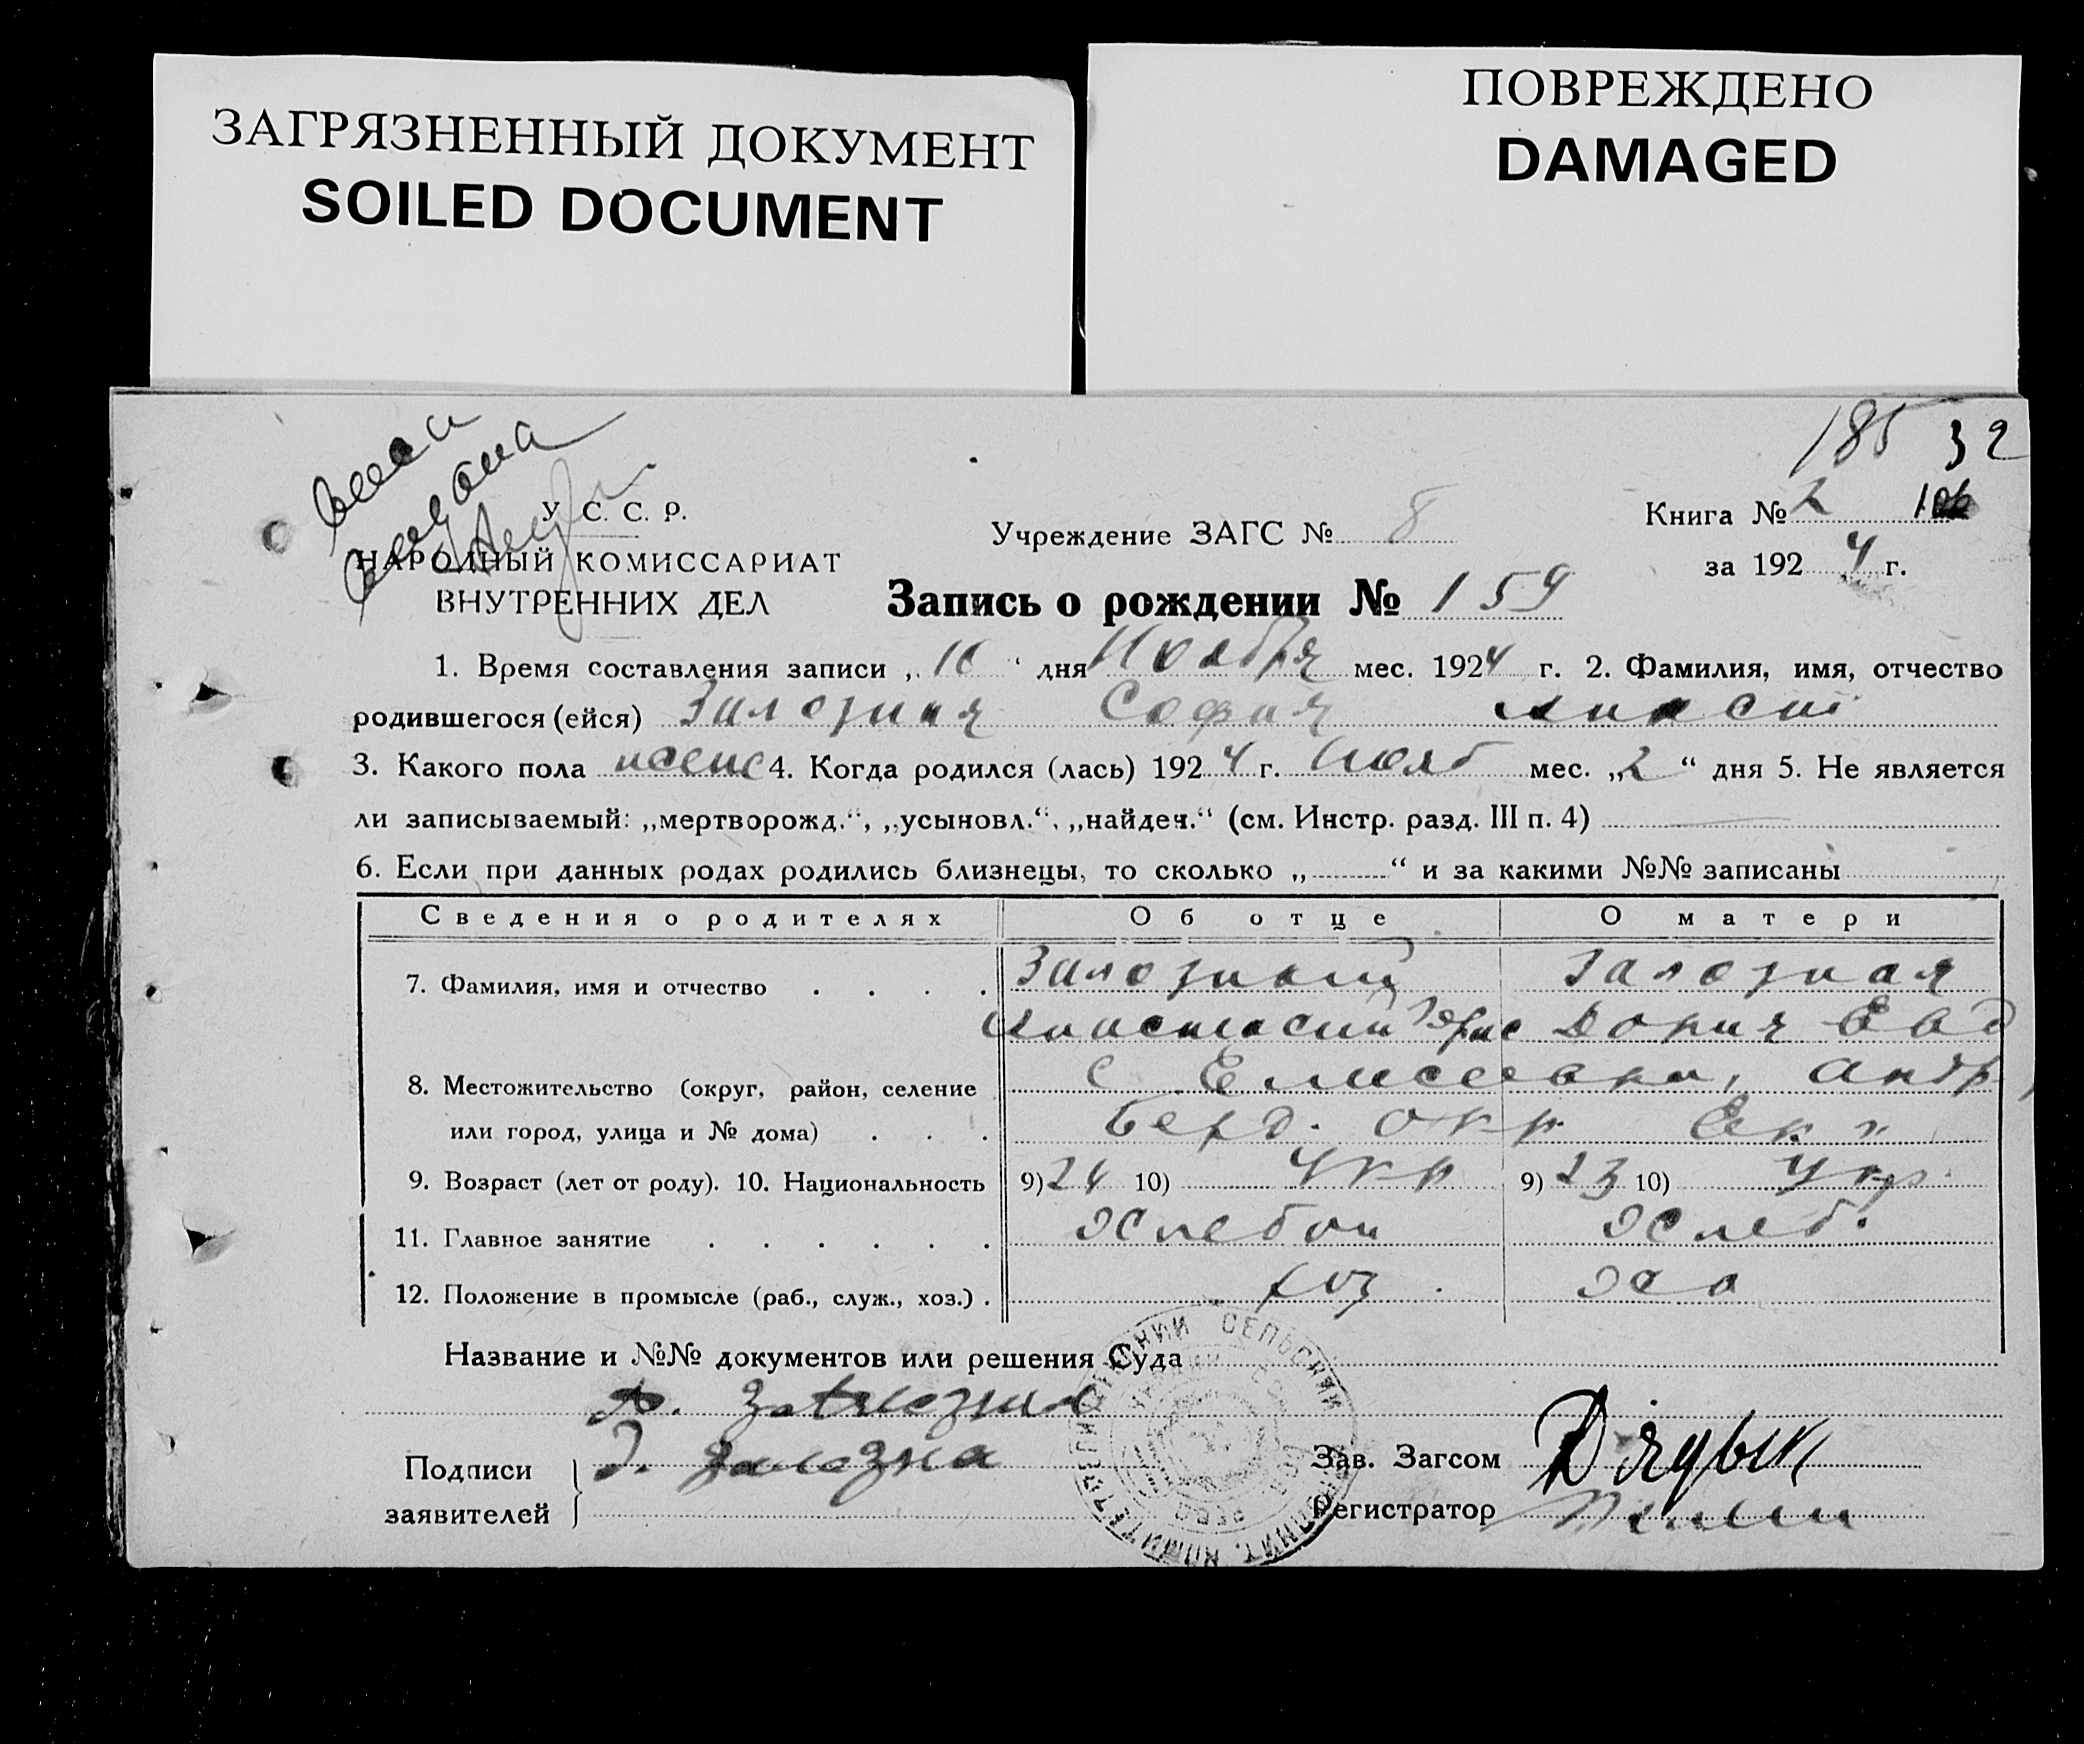 ЗАГРЯЗНЕННЫЙ ДОКУМЕНТ
SOILED DOCUMENT
ПОВРЕЖДЕНО
DAMAGED
185 32
У. С. С. Р.
НАРОДНЫЙ КОМИССАРИАТ
ВНУТРЕННИХ ДЕЛ
Учреждение ЗАГС № 8
Книга № 2
за 1924 г.
Запись о рождении № 159
1. Время составления записи „ “ дня Ноября мес. 1924 г. 2. Фамилия, имя, отчество
родившегося (ейся) Залозная София Анаст
3. Какого пола женс 4. Когда родился (лась) 1924 г. Нояб мес. „2“ дня 5. Не является
ли записываемый: „мертворожд.“, „усыновл.“, „найден.“ (см. Инстр. разд. III п. 4)
6. Если при данных родах родились близнецы, то сколько „ “ и за какими №№ записаны
Сведения о родителях Об отце О матери
7. Фамилия, имя и отчество Залозный Залозная
Анастасий Дария Евд
8. Местожительство (округ, район, селение С Елисеевки, Андр
или город, улица и № дома) Берд. окр Ек
9. Возраст (лет от роду). 10. Национальность 9) 24 10) Укр 9) 23 10) Укр.
11. Главное занятие Хлебоп Хлеб.
12. Положение в промысле (раб., служ., хоз.) хоз
Название и №№ документов или решения Суда
Подписи
заявителей
Зав. Загсом
Регистратор